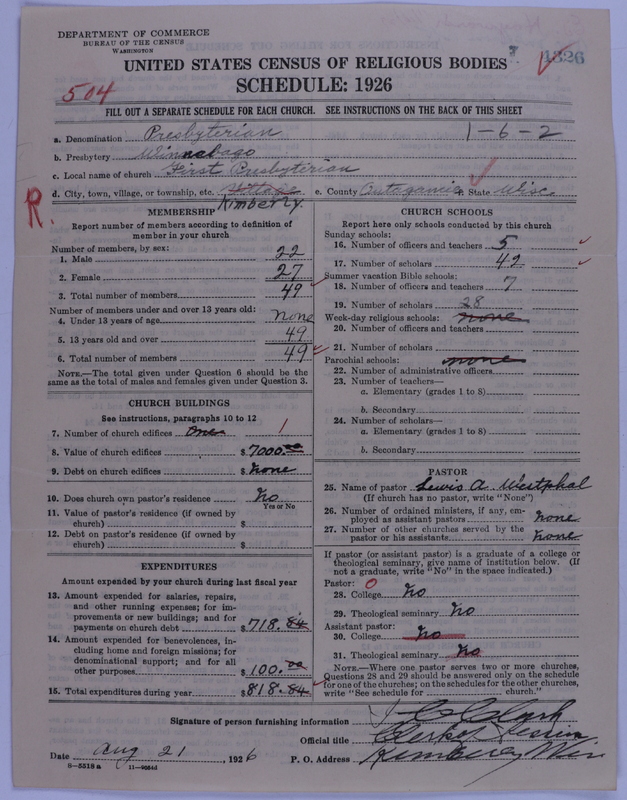 DEPARTMENT OF COMMERCE
BUREAU OF THE CENSUS
WASHINGTON
1326
UNITED STATES CENSUS OF RELIGIOUS BODIES
504
SCHEDULE: 1926
FILL OUT A SEPARATE SCHEDULE FOR EACH CHURCH. SEE INSTRUCTIONS ON THE BACK OF THIS SHEET
a. Denomination Presbyterian 1-6-2
b. Presbytery Winnebago
c. Local name of church First Presbyterian
d. City, town, village, or township, etc. Kimberly. e. County Outagamie f. State Wisc.
R.
MEMBERSHIP
Report number of members according to definition of
member in your church
Number of members, by sex:
1. Male 22
2. Female 27
3. Total number of members 49
Number of members under and over 13 years old:
4. Under 13 years of age none
5. 13 years old and over 49
6. Total number of members 49
NOTE.—The total given under Question 6 should be
same as the total of males and females given under Question 3.
CHURCH BUILDINGS
See instructions, paragraphs 10 to 12
7. Number of church edifices One 1
8. Value of church edifices $7000.00
9. Debt on church edifices $ None
10. Does church own pastor's residence No
Yes or No
11. Value of pastor's residence (if owned by
church) $
12. Debt on pastor's residence (if owned by
church) $
EXPENDITURES
Amount expended by your church during last fiscal year
13. Amount expended for salaries, repairs,
and other running expenses; for im-
provements or new buildings; and for
payments on church debt $718.84
14. Amount expended for benevolences, in-
cluding home and foreign missions; for
denominational support; and for all
other purposes $100.00
15. Total expenditures during year $818.84
CHURCH SCHOOLS
Report here only schools conducted by this church
Sunday schools:
16. Number of officers and teachers 5
17. Number of scholars 42
Summer vacation Bible schools:
18. Number of officers and teachers 7
19. Number of scholars 28
Week-day religious schools: none
20. Number of officers and teachers
21. Number of scholars
Parochial schools: none
22. Number of administrative officers
23. Number of teachers—
a. Elementary (grades 1 to 8)
b. Secondary
24. Number of scholars—
a. Elementary (grades 1 to 8)
b. Secondary
PASTOR
25. Name of pastor Lewis A. Westphal
(If church has no pastor, write "None")
26. Number of ordained ministers, if any, em-
ployed as assistant pastors none
27. Number of other churches served by the
pastor or his assistants none
If pastor (or assistant pastor) is a graduate of a college or
theological seminary, give name of institution below. (If
not a graduate, write "No" in the space indicated.)
Pastor: 0
28. College No
29. Theological seminary No
Assistant pastor:
30. College No
31. Theological seminary No
NOTE.—Where one pastor serves two or more churches,
Questions 28 and 29 should be answered only on the schedule
for one of the churches; on the schedules for the other churches,
write "See schedule for church."
Signature of person furnishing information J C Clark
Official title Clerk of Session
Date Aug 21, 1926 P. O. Address Kimberly Wis
8—5518 a 11—9054d